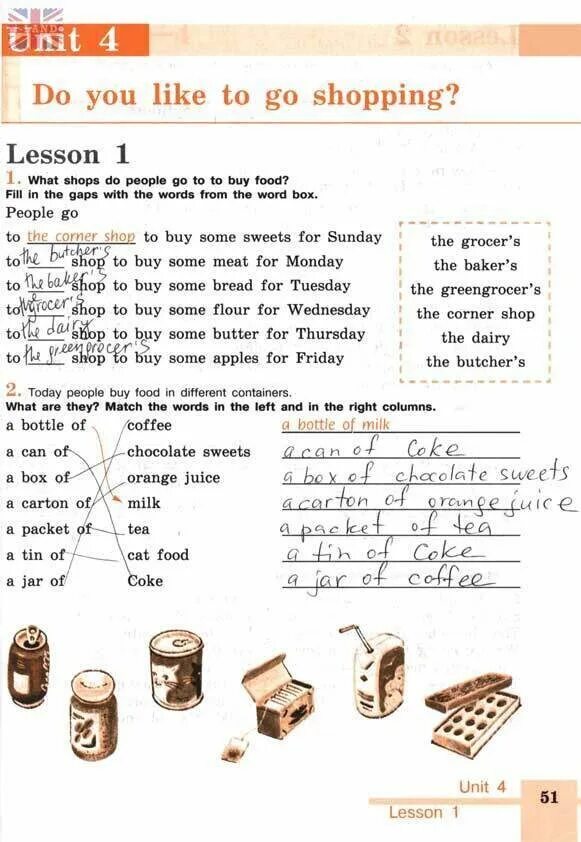 Unit 4
Do you like to go shopping?
Lesson 1
1. What shops do people go to to buy food?
Fill in the gaps with the words from the word box.
People go
to the corner shop to buy some sweets for Sunday
to the butcher's shop to buy some meat for Monday
to the baker's shop to buy some bread for Tuesday
to the grocer's shop to buy some flour for Wednesday
to the dairy shop to buy some butter for Thursday
to the greengrocer's shop to buy some apples for Friday
the grocer's
the baker's
the greengrocer's
the corner shop
the dairy
the butcher's
2. Today people buy food in different containers.
What are they? Match the words in the left and in the right columns.
a bottle of coffee a bottle of milk
a can of chocolate sweets a can of Coke
a box of orange juice a box of chocolate sweets
a carton of milk a carton of orange juice
a packet of tea a packet of tea
a tin of cat food a tin of Coke
a jar of Coke a jar of coffee
Unit 4
Lesson 1
51